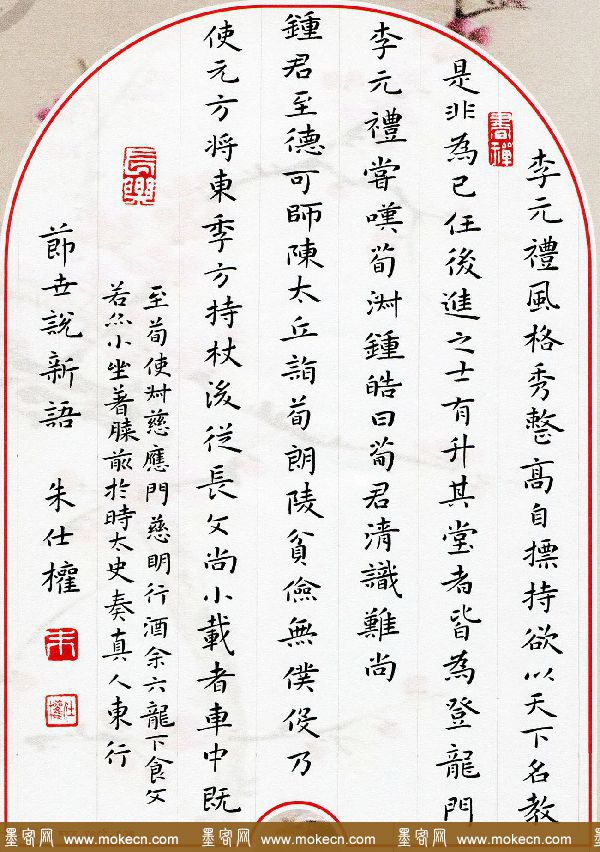 李元禮風格秀整高自摽持欲以天下名教
書禪
是非為己任後進之士有升其堂者皆為登龍門
李元禮嘗嘆荀淑鍾皓曰荀君清識難尚
鍾君至德可師陳太丘詣荀朗陵貧儉無僕役乃
使元方将東季方持杖後從長文尚小載者車中既
長樂
至荀使叔慈應門慈明行酒余六龍下食文
若亦小坐著膝前於時太史奏真人東行
節世說新語 朱仕權
朱
仕權
墨客网 www.mokecn.com 墨客网 www.mokecn.com 墨客网 www.mokecn.com